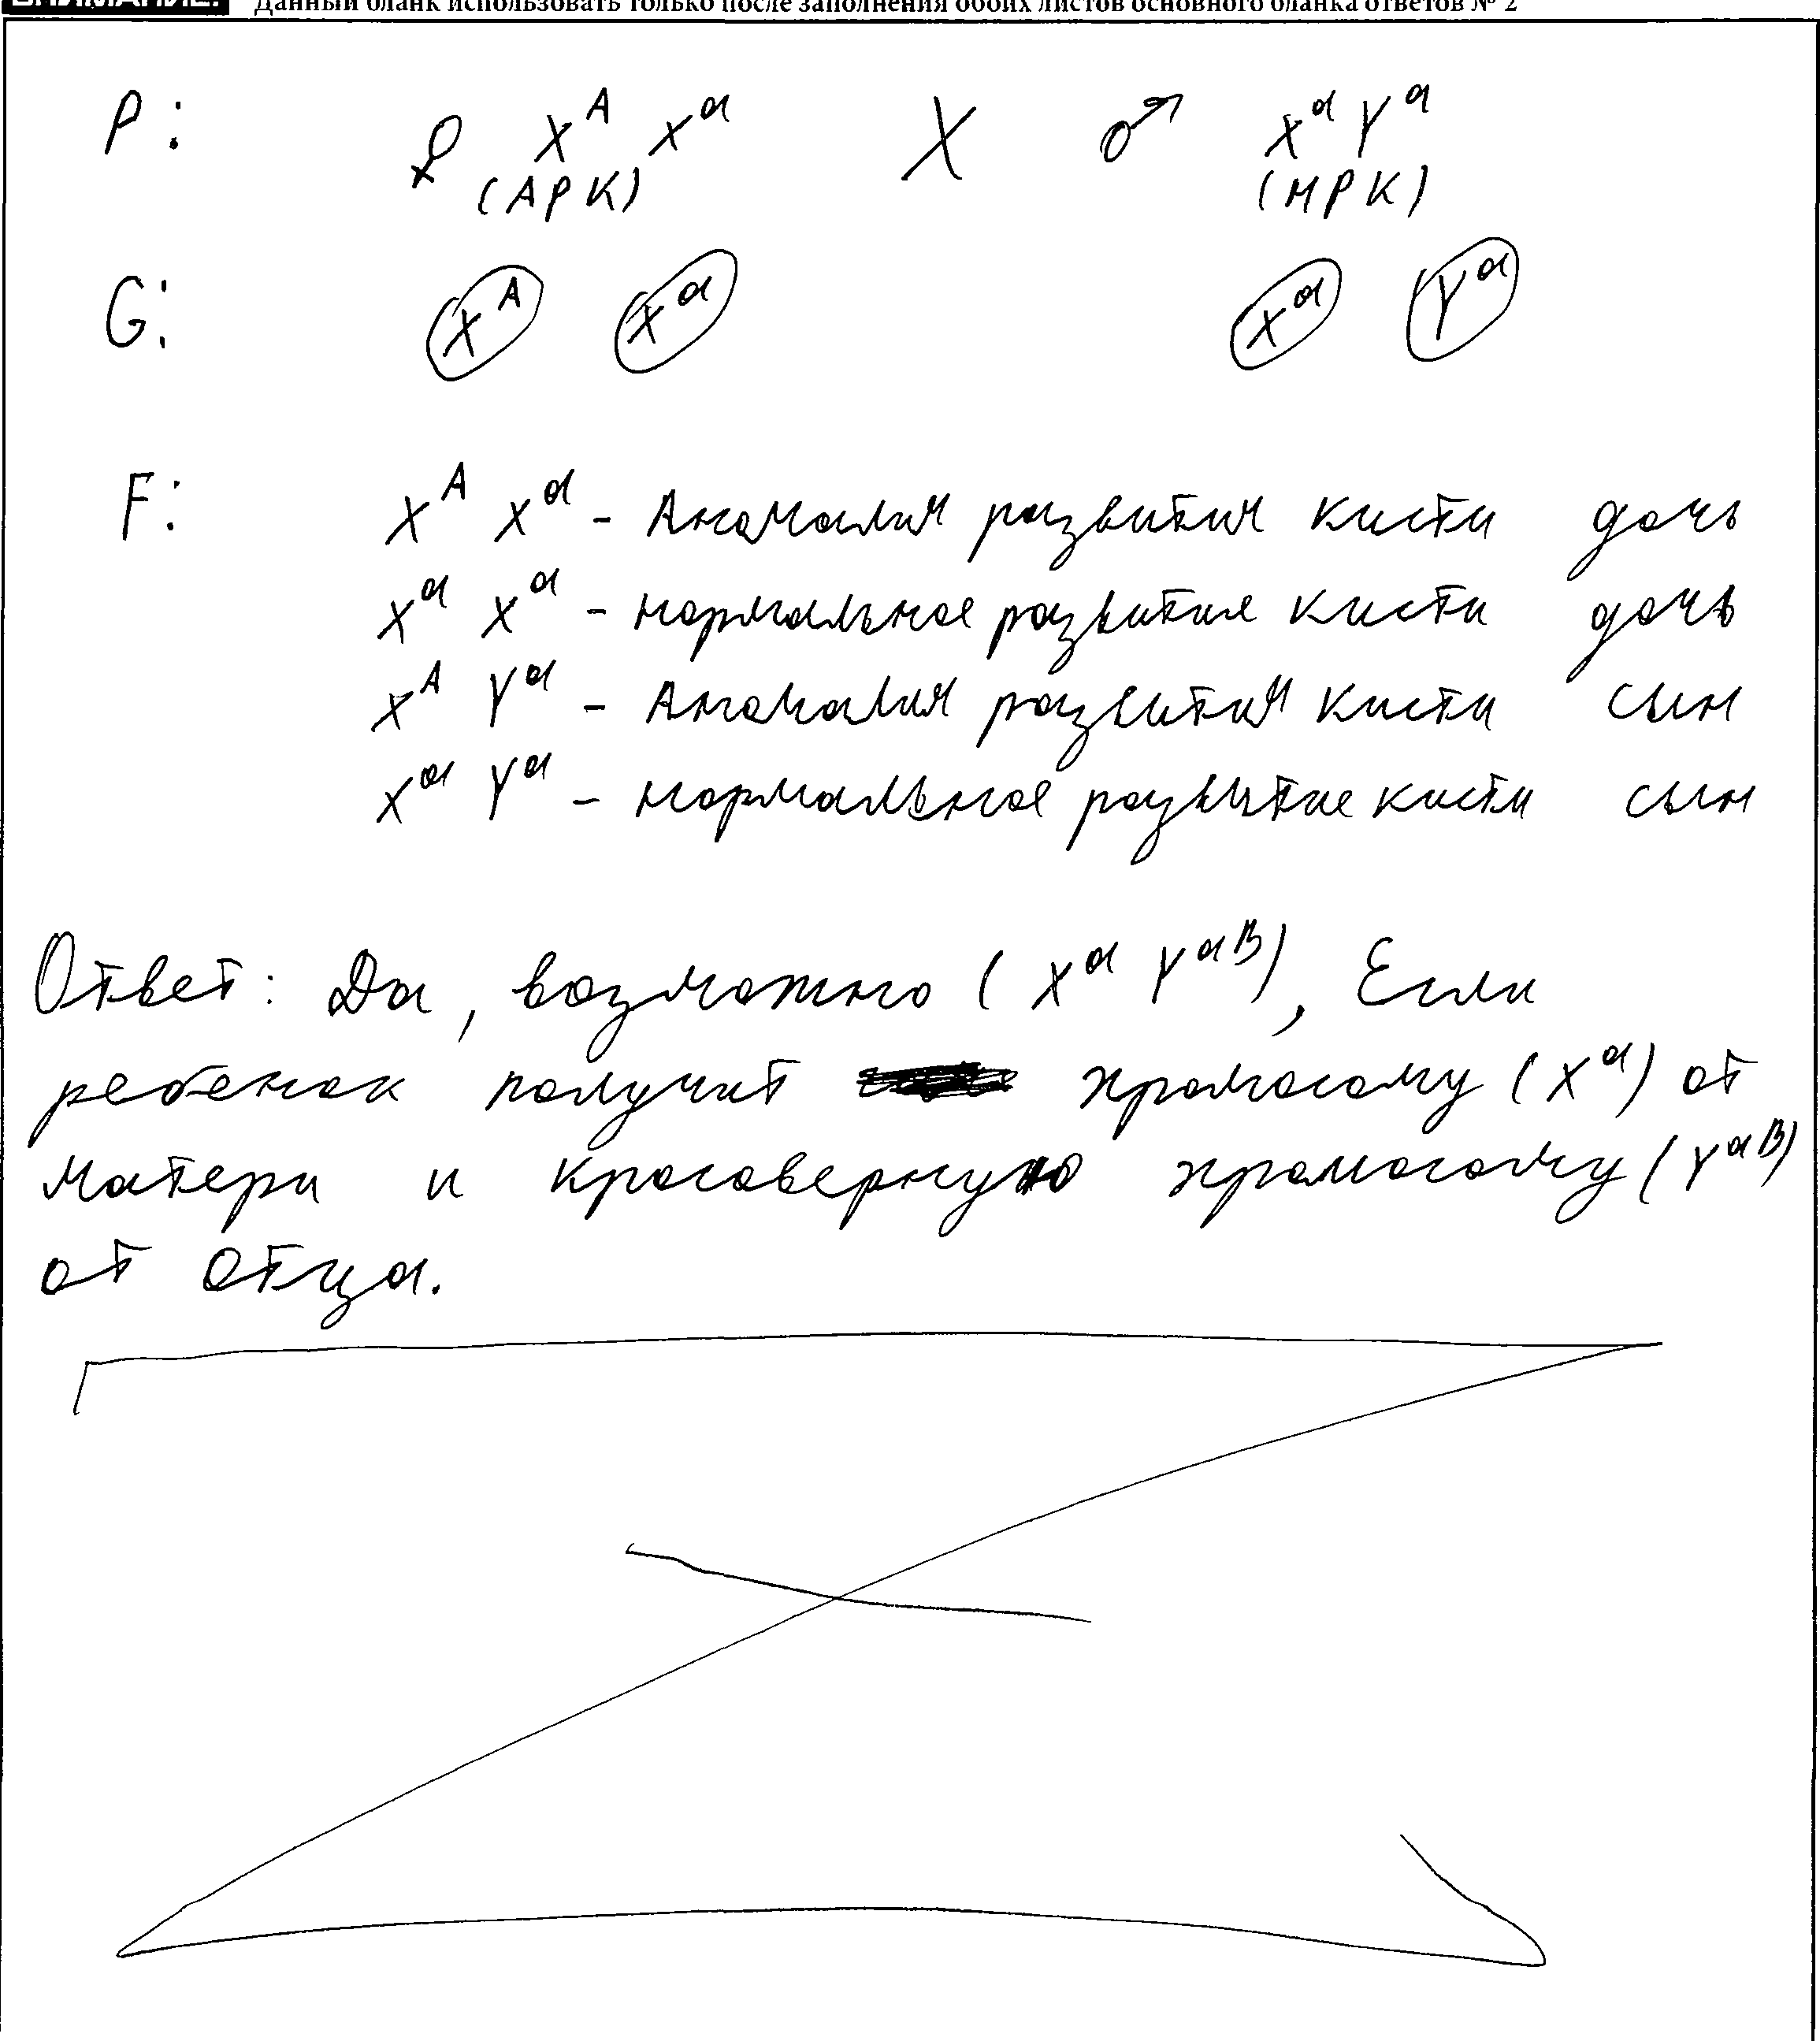 ВНИМАНИЕ! Данный бланк использовать только после заполнения обоих листов основного бланка ответов № 2
P: ♀ X^A X^a X ♂ X^a Y^a
(АРК) (НРК)
G: X^A X^a X^a Y^a
F: X^A X^a - Аномалия развития кисти дочь
X^a X^a - нормальное развитие кисти дочь
X^A Y^a - Аномалия развития кисти сын
X^a Y^a - нормальное развитие кисти сын
Ответ: Да, возможно (X^a Y^aB), Если
ребенок получит хромосому (X^a) от
матери и кросоверную хромосому (Y^aB)
от отца.